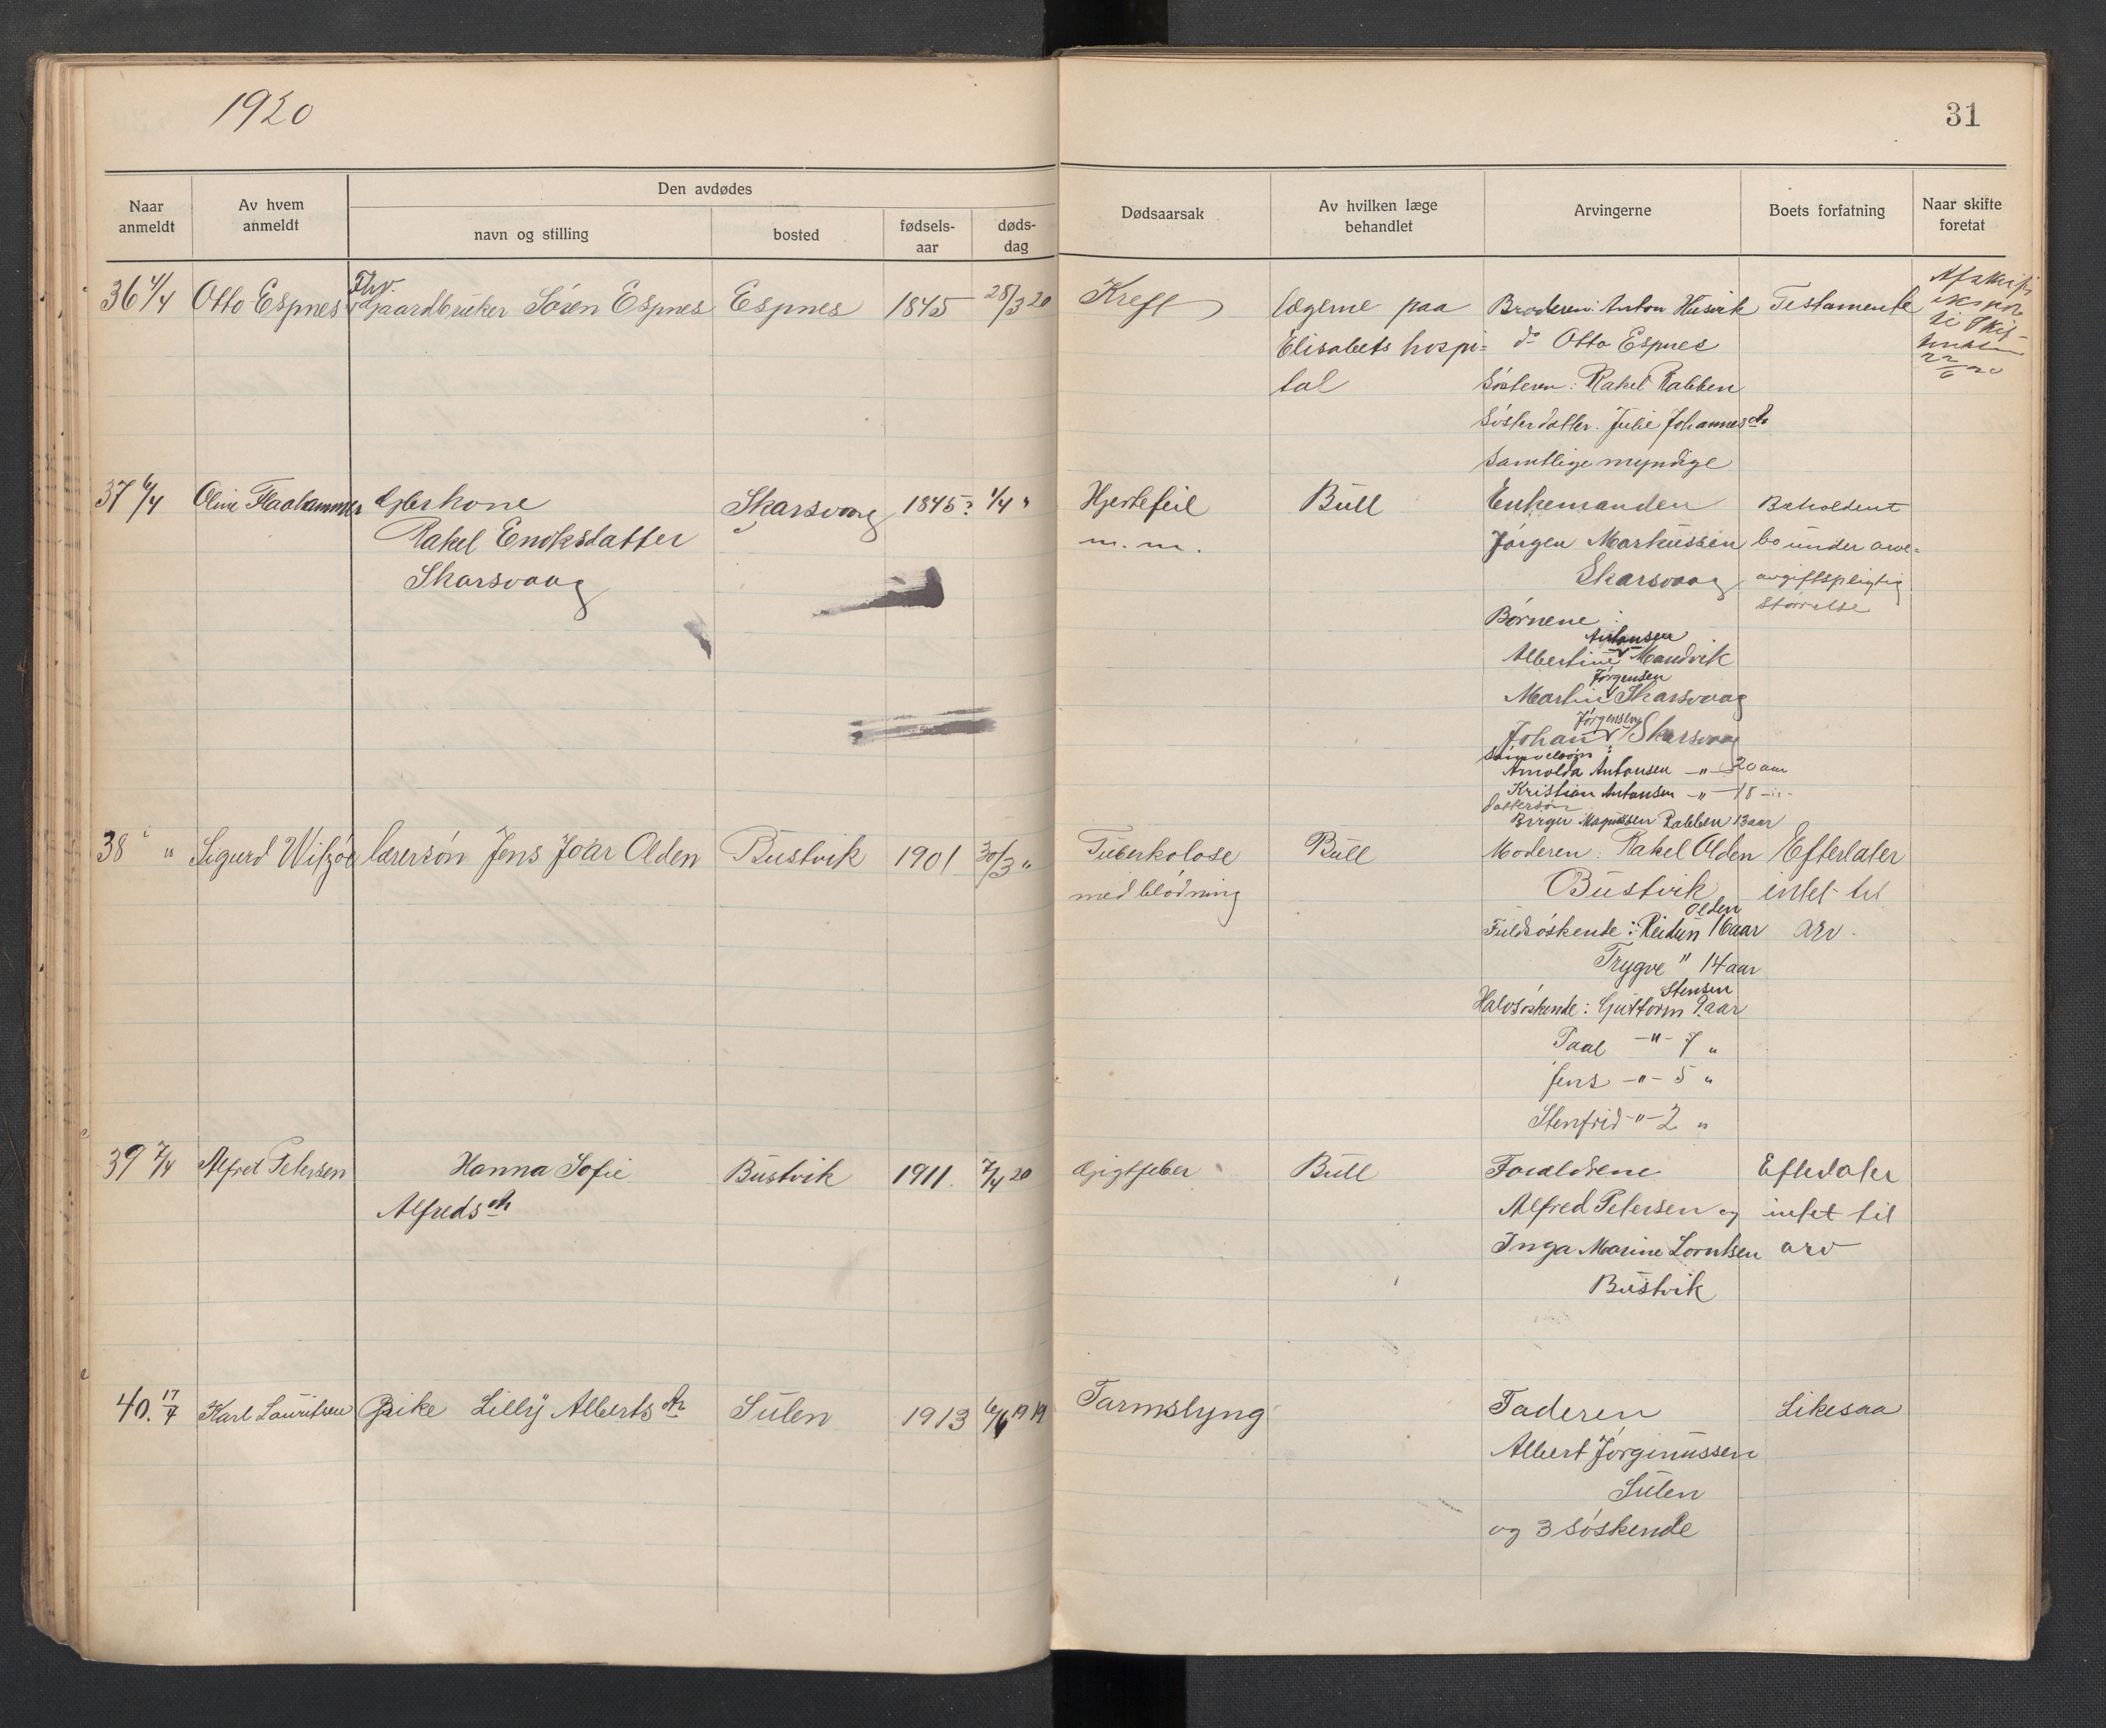 1920
31
Naar anmeldt
Av hvem anmeldt
Den avdødes
navn og stilling
bosted
fødsels-aar
døds-dag
Dødsaarsak
Av hvilken læge behandlet
Arvingerne
Boets forfatning
Naar skifte foretat
36 4/4 Otto Espnes Fhv. Gaardbruker Sören Espnes Espnes 1845 28/3 20
Kreft
lægerne paa
Elisabets hospi=
tal
Broderen: Anton Husvik
do Otto Espnes
Søsteren: Rakel Rabben
Søsterdatter. Julie Johannesdtr
Samtlige myndige
Testamente
22/6 20
37 6/4 Oline Flaahammer Gjerkone
Rakel Enoksdatter
Skarsvaag
Skarsvaag 1845? 1/4 "
Hjertefeil
m. m.
Bull
Enkemanden
Jørgen Markussen
Skarsvaag
Børnene:
Antonsen
Albertine Mandvik
Jørgensen
Martin Skarsvaag
Jørgensen
Johan Skarsvaag
Arnolda Antonsen -"- 20 aar
Kristian Antonsen -"- 18 -"-
Dattersøn
Birger Magnussen Rabben 13 aar
Beholdent
bo under arve=
avgiftspligtig
størrelse
38 " Sigurd Witzøe lærersön Jens Joar Olden Bustvik 1901 30/3 "
Tuberkolose
med blödning
Bull
Moderen: Rakel Olden
Bustvik
Olden
Fuldsøskende: Reidun 16 aar
Trygve " 14 aar
Stensen
Halvsøskende: Guttorm 9 aar
Paal -"- 7 "
Jens -"- 5 "
Stenfrid -"- 2 "
Efterlater
intet til
arv.
39 7/4 Alfret Petersen Hanna Sofie
Alfredsdtr
Bustvik 1911. 7/4 20
Gigtfeber
Bull
Forældrene
Alfred Petersen og
Inga Marine Lorntsen
Bustvik
Efterlater
intet til
arv
40. 17/4 Karl Lauritsen Pike Lilly Albertsdtr Sulen 1913 6/6 1919
Tarmslyng
Faderen
Albert Jørginussen
Sulen
og 3 søskende
Likesaa